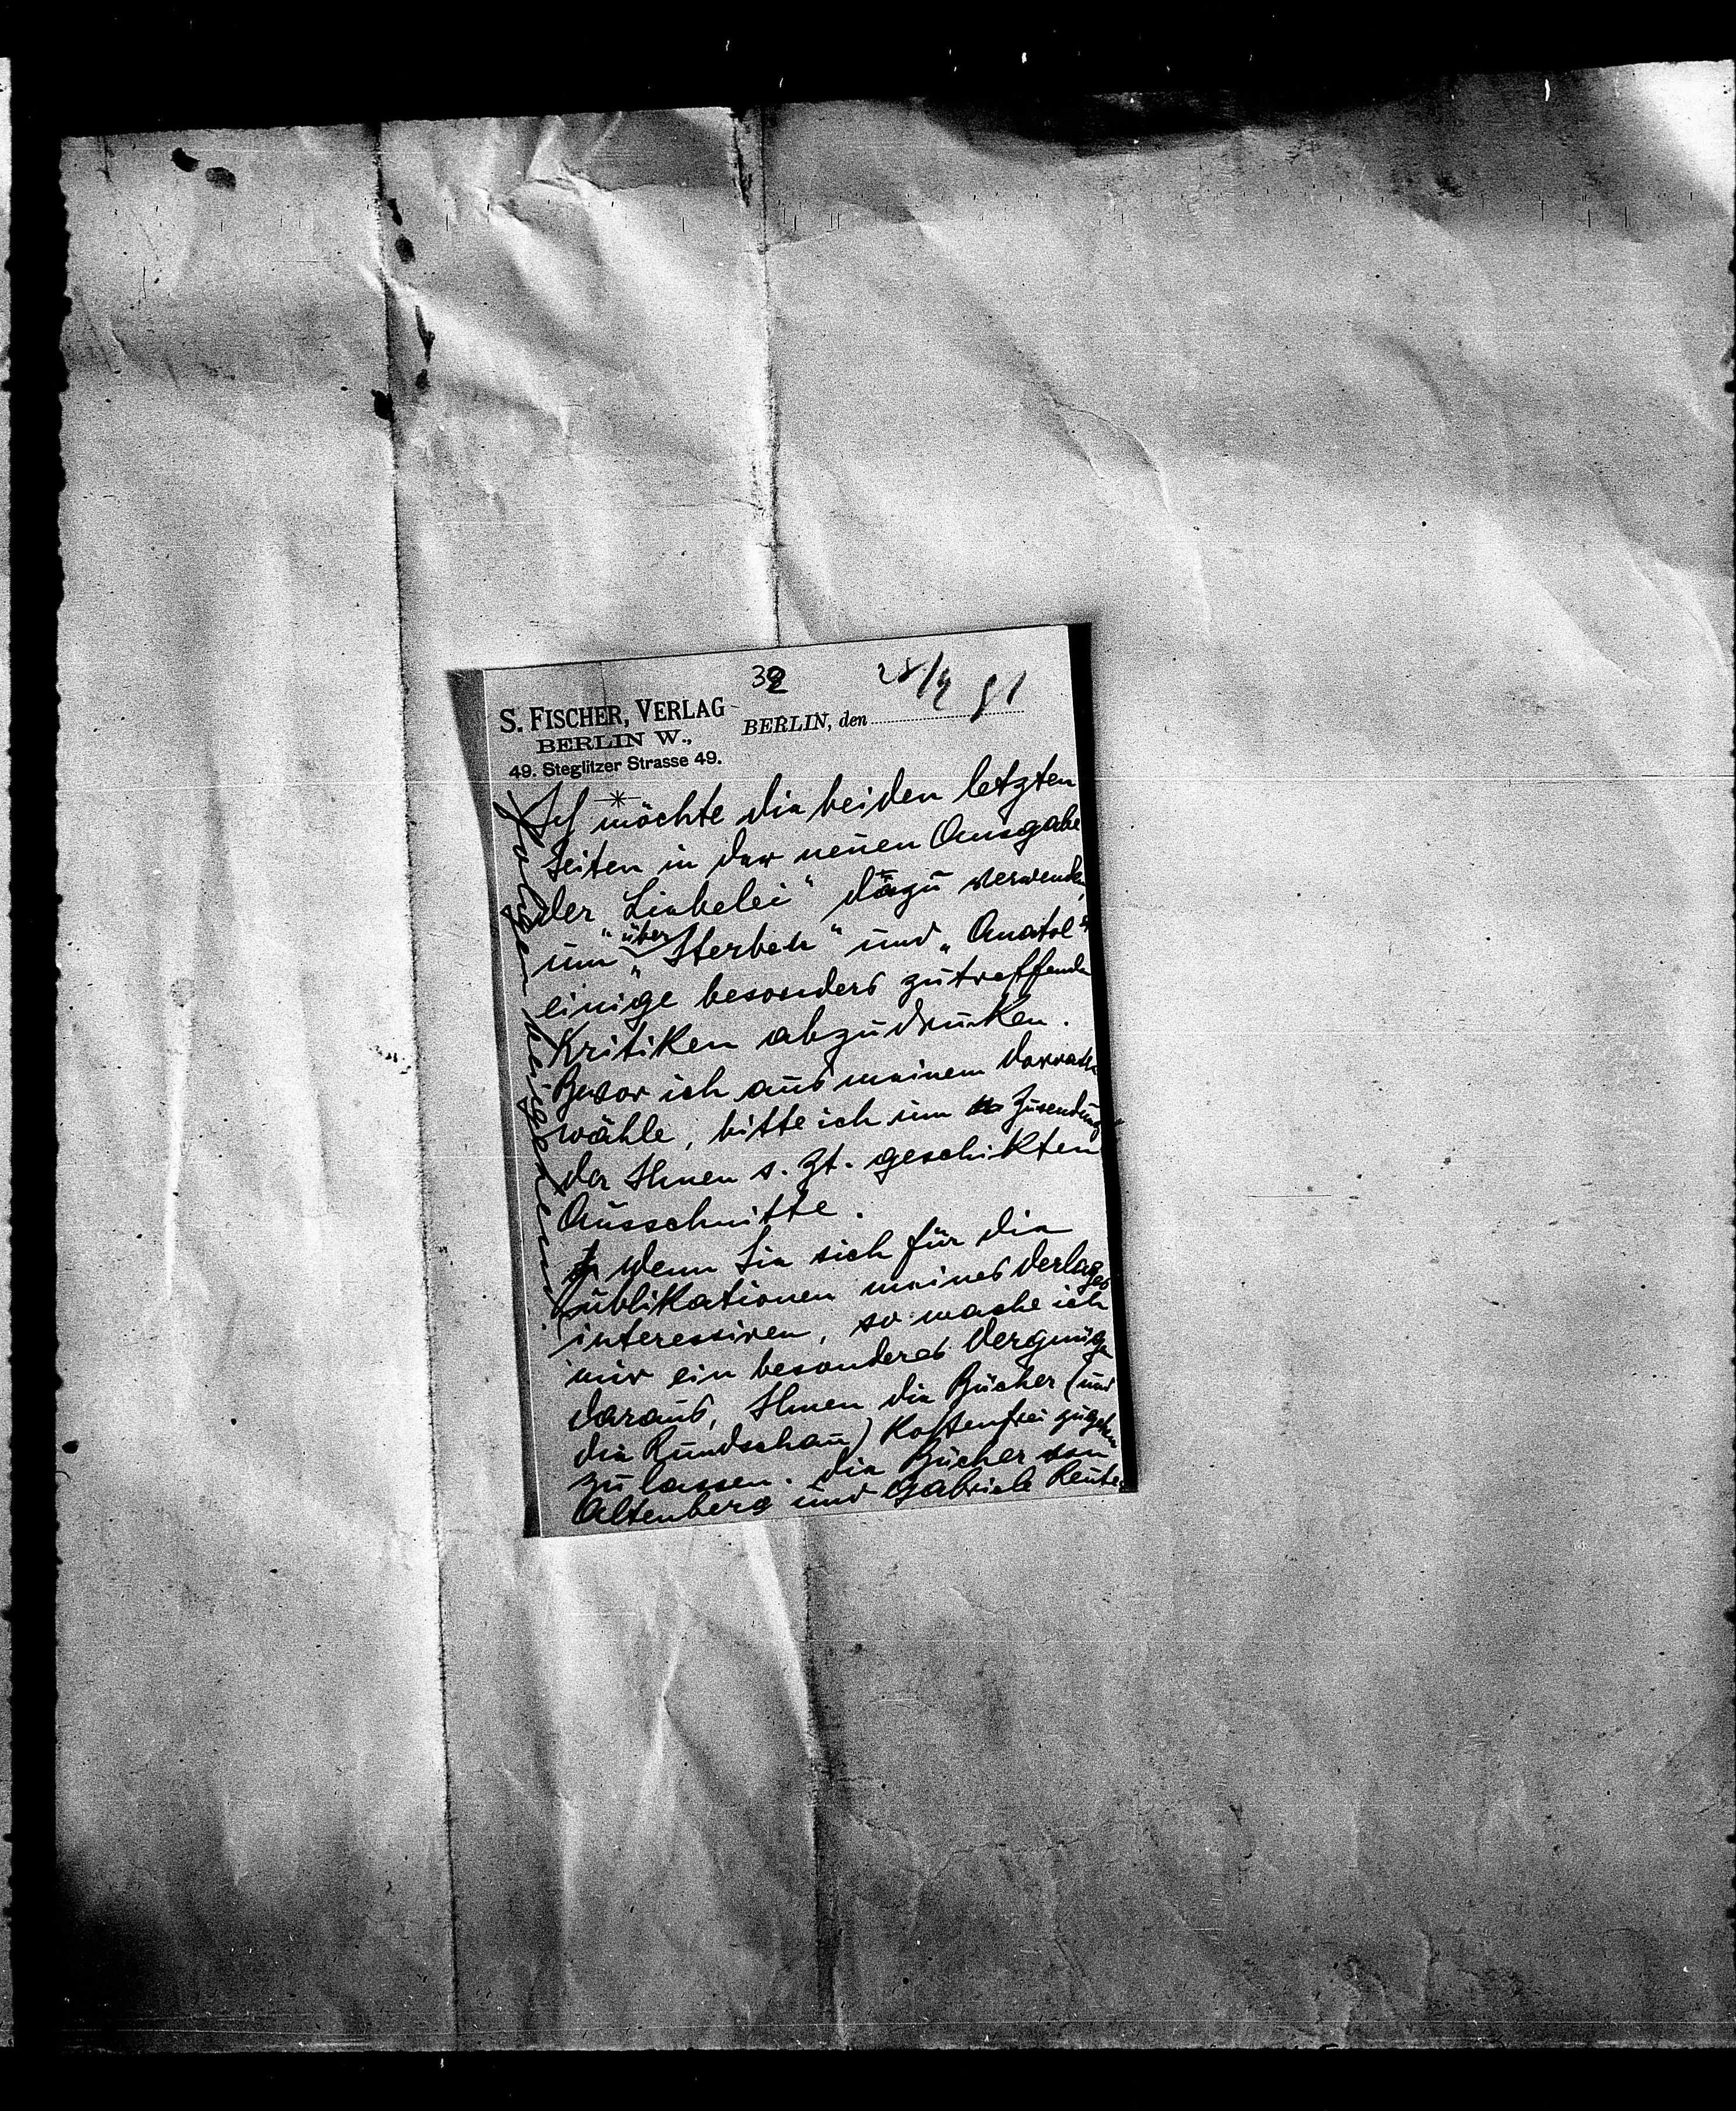 32
S. FISCHER, VERLAG
BERLIN W.,
49. Steglitzer Strasse 49.
BERLIN, den
Ich möchte die beiden letzten
Seiten in der neuen Ausgabe
der "Liebelei" dazu verwenden,
um über "Sterben" und "Anatol"
einige besonders zutreffende
Kritiken abzudrucken.
Bevor ich aus meinem Vorrath
wähle, bitte ich um Zusendung
der Ihnen s. Zt. geschikten
Ausschnitte.
Wenn Sie sich für die
Publikationen meines Verlages
interessiren, so mache ich
mir ein besonderes Vergnügen
daraus, Ihnen die Bücher (und
die Rundschau) kostenfrei zugehen
zu lassen. Die Bücher von
Altenberg und Gabriele Reuter
folgen